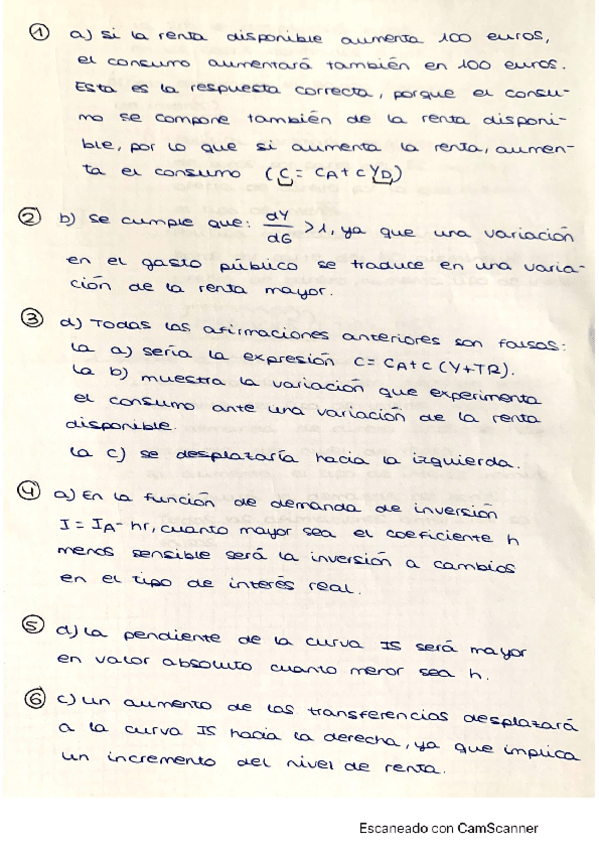 ① a) si la renta disponible aumenta 100 euros,
el consumo aumentará también en 100 euros.
Esta es la respuesta correcta, porque el consu-
mo se compone también de la renta disponi-
ble, por lo que si aumenta la renta, aumen-
ta el consumo (C = CA + cYD)
② b) se cumple que: dY/dG > 1, ya que una variación
en el gasto público se traduce en una varia-
ción de la renta mayor.
③ d) Todas las afirmaciones anteriores son falsas:
La a) sería la expresión C = CA + c (Y+TR).
La b) muestra la variación que experimenta
el consumo ante una variación de la renta
disponible.
La c) se desplazaría hacia la izquierda.
④ a) En la función de demanda de inversión
I = IA - hr, cuanto mayor sea el coeficiente h
menos sensible será la inversión a cambios
en el tipo de interés real.
⑤ d) La pendiente de la curva IS será mayor
en valor absoluto cuanto menor sea h.
⑥ c) Un aumento de las transferencias desplazará
a la curva IS hacia la derecha, ya que implica
un incremento del nivel de renta.
Escaneado con CamScanner